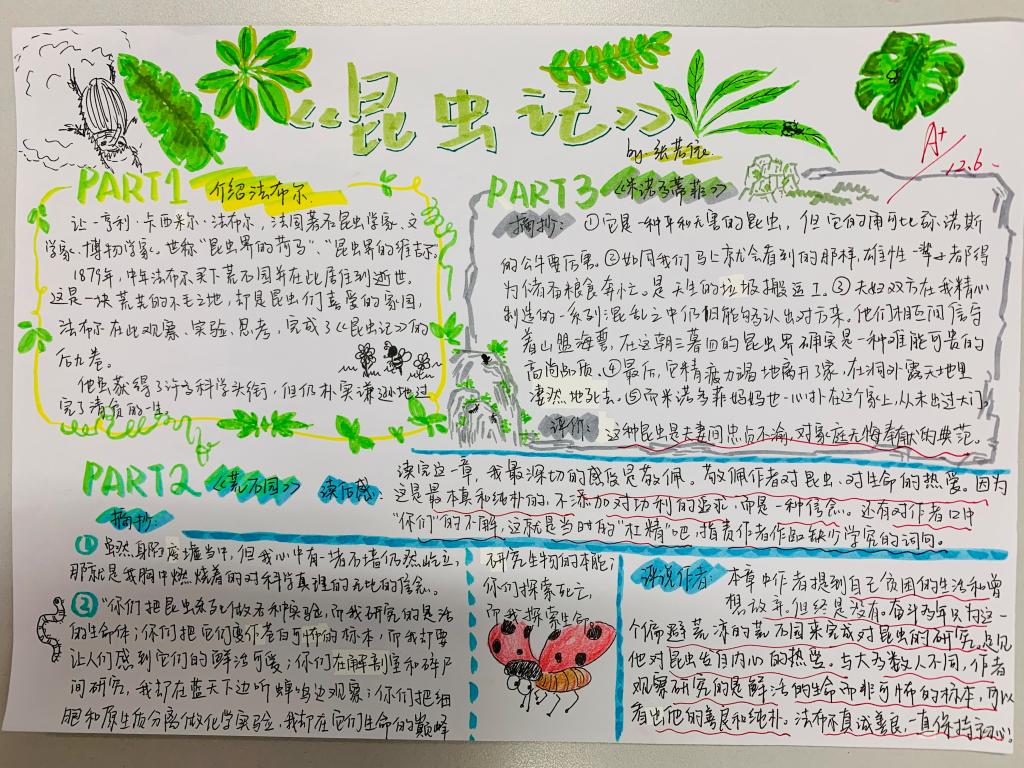 《昆虫记》
by 张若
A+
12.6.
PART1 介绍法布尔
让-亨利·卡西米尔·法布尔，法国著名昆虫学家、文
学家、博物学家。世称“昆虫界的荷马”、“昆虫界的维吉尔”
1879年，中年法布尔买下荒石园并在此居住到逝世。
这是一块荒芜的不毛之地，却是昆虫们喜爱的家园，
法布尔在此观察、实验、思考，完成了《昆虫记》的
后九卷。
他虽获得了许多科学头衔，但仍朴实谦逊地过
完了清贫的一生。
PART3 《米诺多蒂菲》
摘抄：①它是一种平和无害的昆虫，但它的角可比弥诺斯
的公牛要厉害。②如同我们马上就会看到的那样，雄性一辈子都得
为储存粮食奔忙。是天生的垃圾搬运工。③夫妇双方在我精心
制造的一系列混乱之中仍旧能够认出对方来。他们相互间信守
着山盟海誓，在这朝三暮四的昆虫界确实是一种难能可贵的
高尚品质。④最后，它精疲力竭地离开了家，在洞外露天地里
凄然地死去。⑤而米诺多蒂菲妈妈也一心扑在这个家上，从未出过大门。
评价：这种昆虫是夫妻间忠贞不渝，对家庭无悔奉献的典范。
PART2 《荒石园》 读后感：
读完这一章，我最深切的感受是敬佩。敬佩作者对昆虫、对生命的热爱。因为
这是最本真和纯朴的，不添加对功利的追求，而是一种信念。还有对作者口中
“你们”的不解，这就是当时的“杠精”吧，指责作者作品缺少学究的词句。
摘抄：
① 虽然身陷废墟当中，但我心中有一堵石墙仍然屹立，
那就是我胸中燃烧着的对科学真理的无比的信念。
② “你们把昆虫杀死做各种实验，而我研究的是活
的生命体；你们把它们当作苍白可怖的标本，而我却要
让人们感到它们的鲜活可爱；你们在解剖室和碎尸
间研究，我却在蓝天下边听蝉鸣边观察；你们把细
胞和原生质分离做化学实验，我却在它们生命的巅峰
来研究生物的本能；
你们探索死亡，
而我探索生命。”
评说作者：本章中作者提到自己贫困的生活和曾
想放弃，但终是没有。奋斗多年只为这一
个偏僻荒凉的荒石园来完成对昆虫的研究。足见
他对昆虫发自内心的热爱。与大多数人不同，作者
观察研究的是鲜活的生命而非可怖的标本，可以
看出他的善良和纯朴。法布尔真诚善良，一直保持初心！